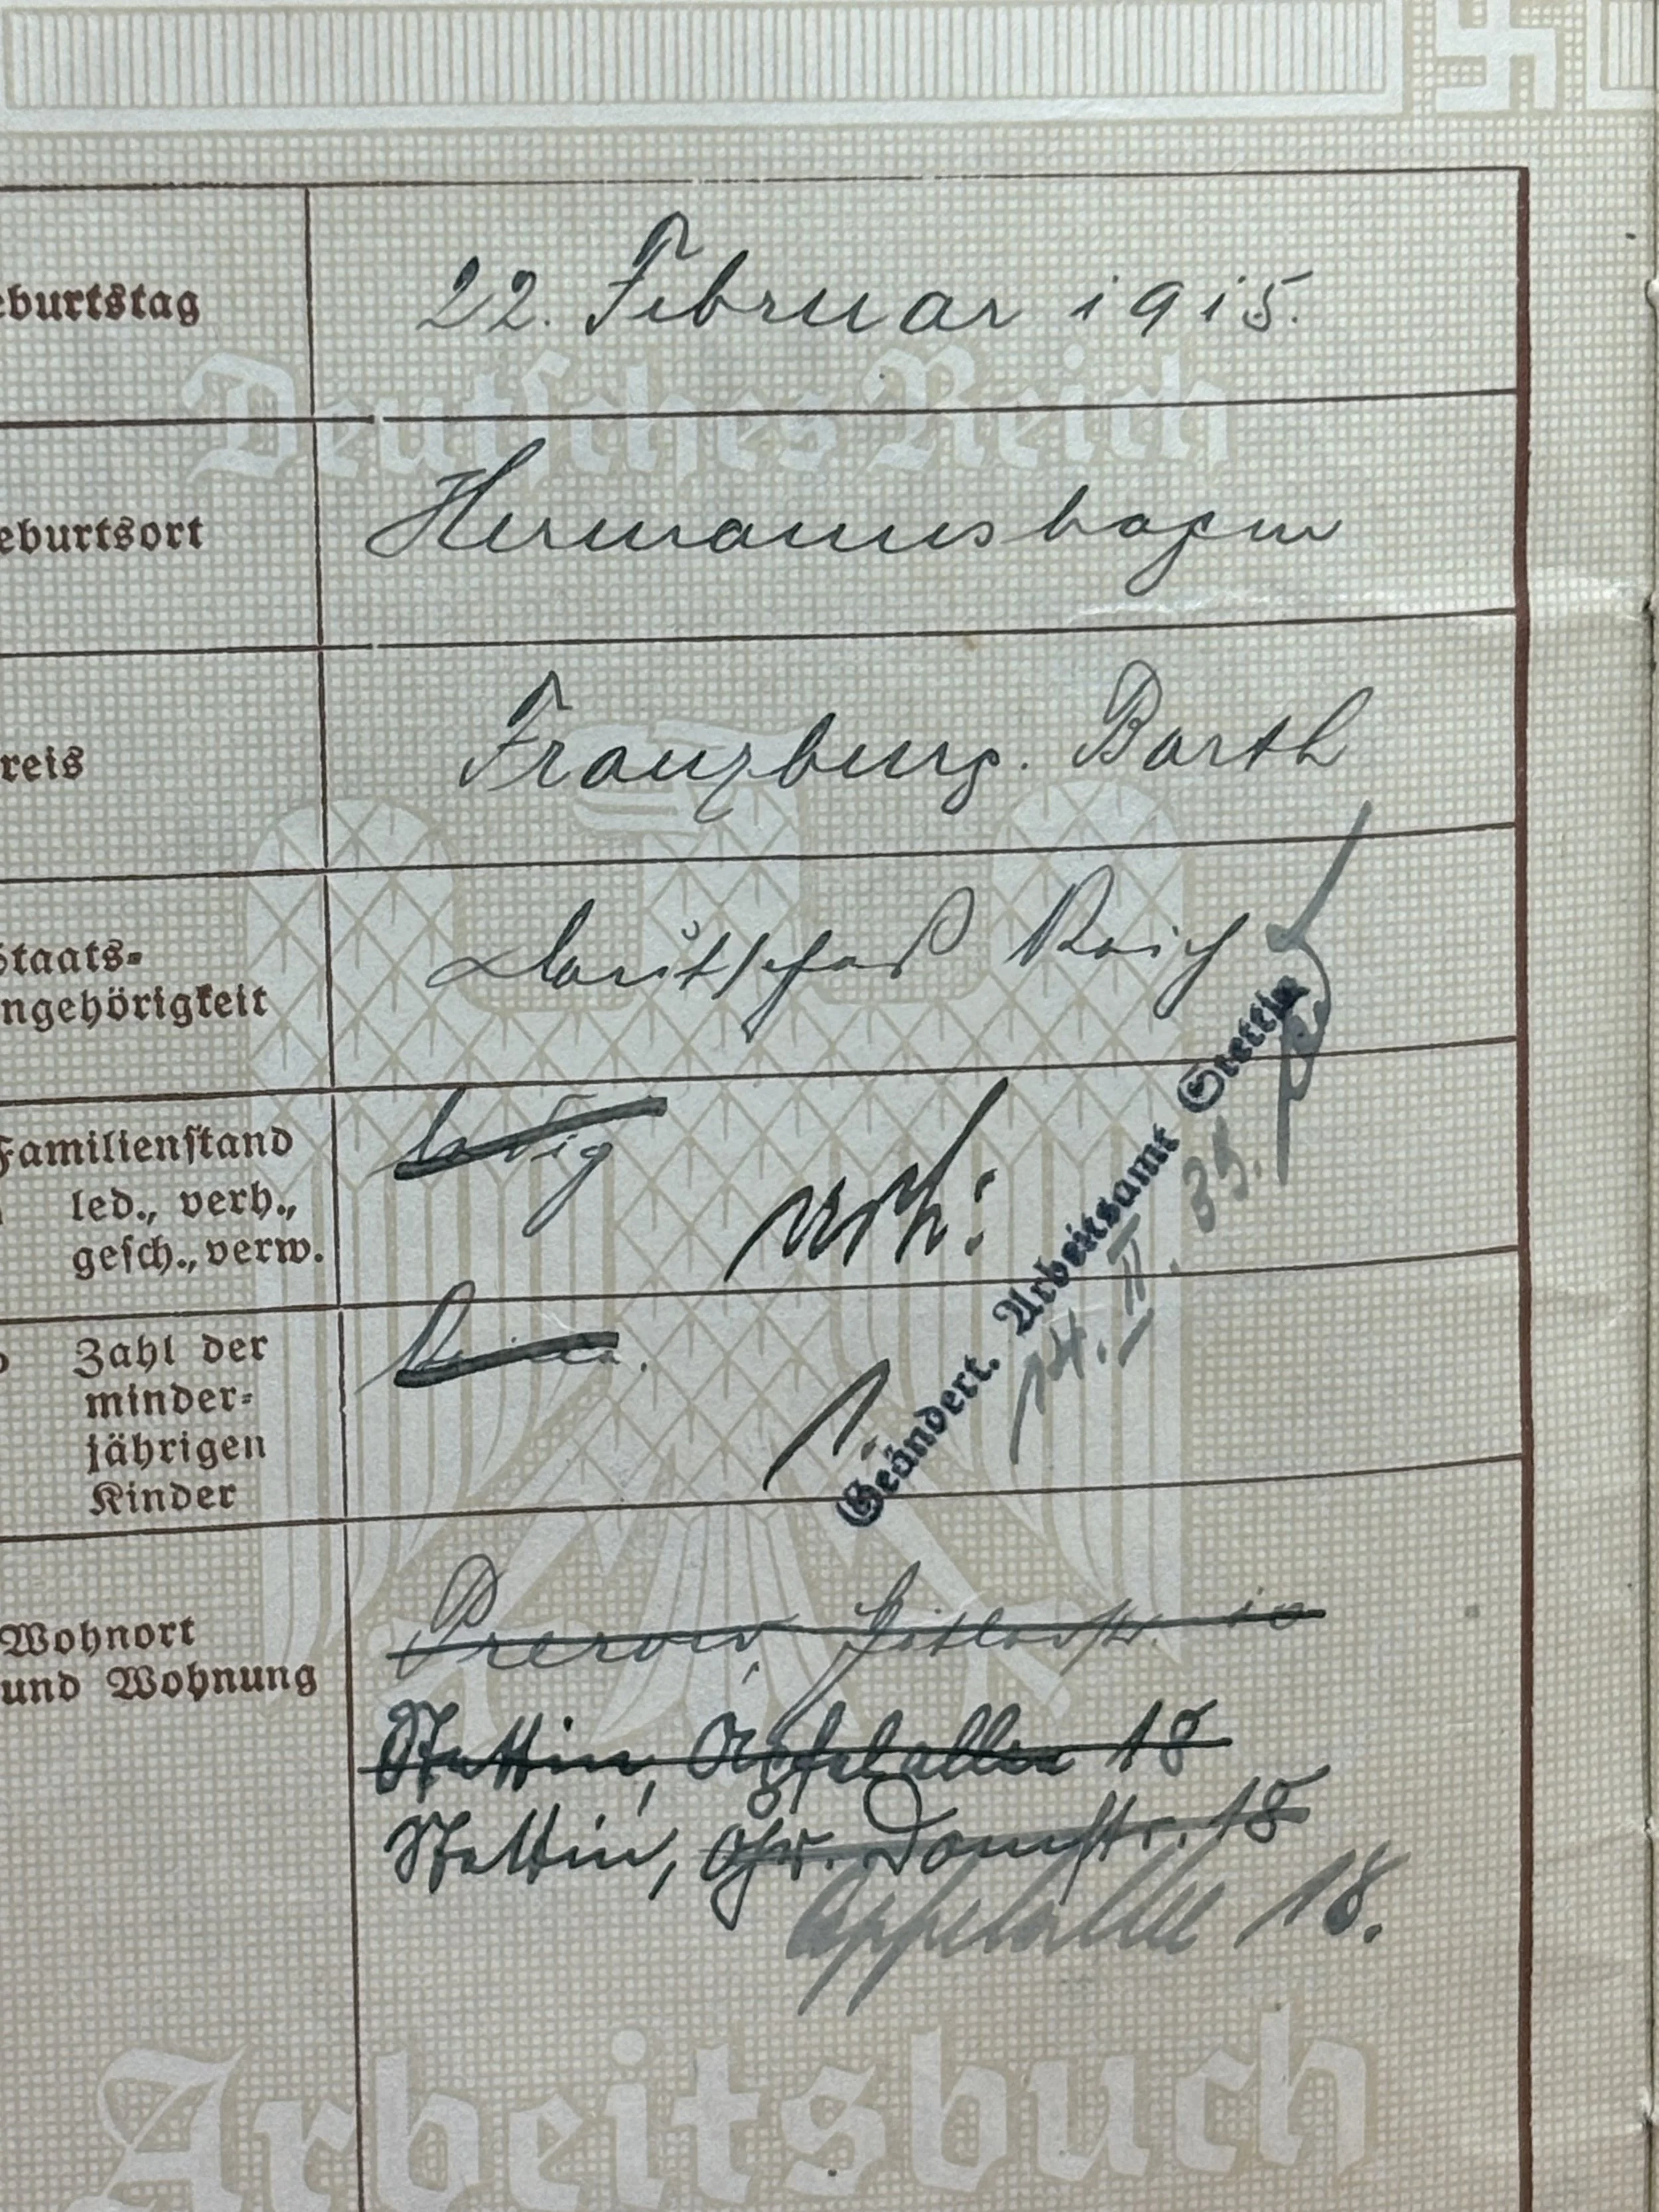 eburtstag
22. Februar 1915.
Deutsches Reich
eburtsort
Hermannshagen
reis
Franzburg. Barth
Staats-
ngehörigkeit
Deutsches Reich
Familienstand
led., verh.,
gesch., verw.
ledig
verh:
Zahl der
minder-
jährigen
Kinder
keine.
1.
Geändert. Arbeitsamt Stettin
14. II. 39.
Wohnort
und Wohnung
Prerow, 10
Stettin, Apfelallee 18
Stettin, Gr. Domstr. 18
Apfelallee 18.
Arbeitsbuch